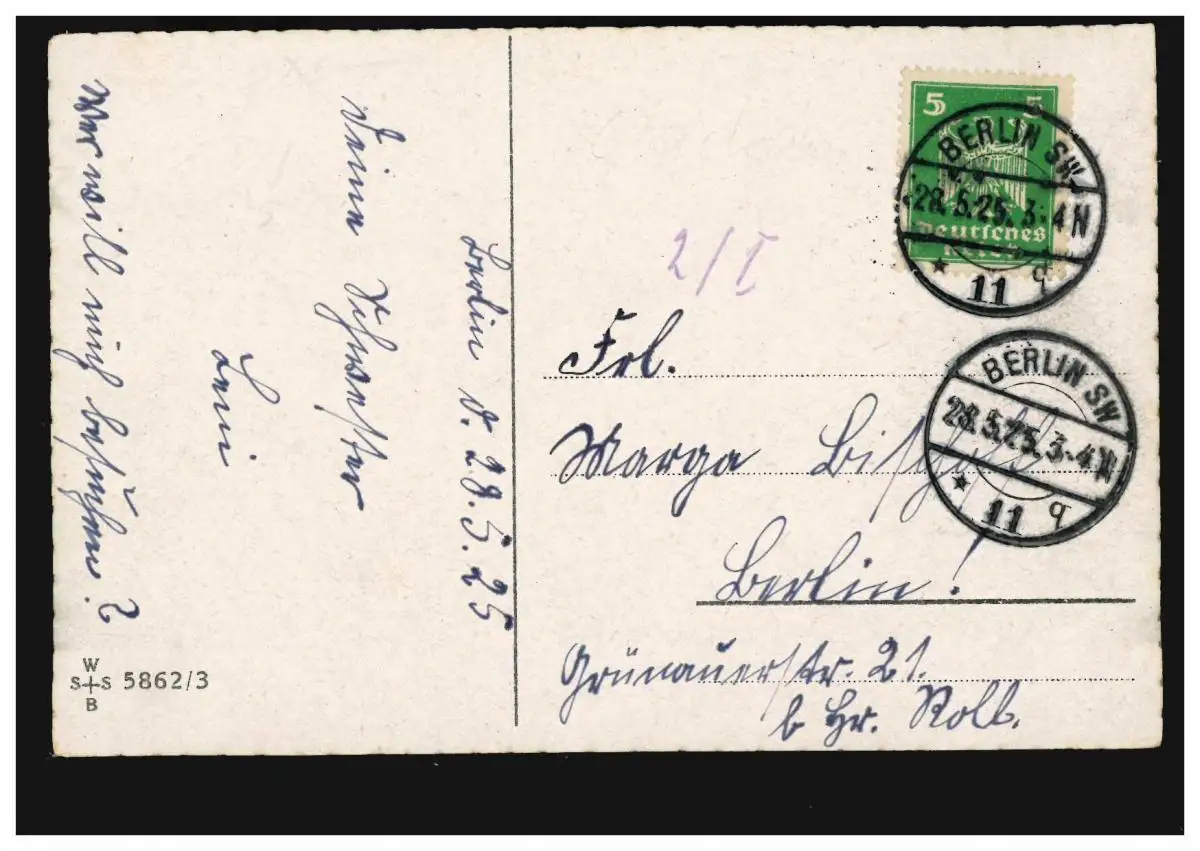 Berlin d. 28.5.25
Deine Schwester
Leni
Wer will mich besuchen?
W
S+S 5862/3
B
5 5
Deutsches
Reich
BERLIN SW
28.5.25. 3-4 N
* 11 q
2/I
BERLIN SW
28.5.25. 3-4 N
* 11 q
Frl.
Marga Bischoff
Berlin!
Grünauerstr. 21.
b Hr. Roll.